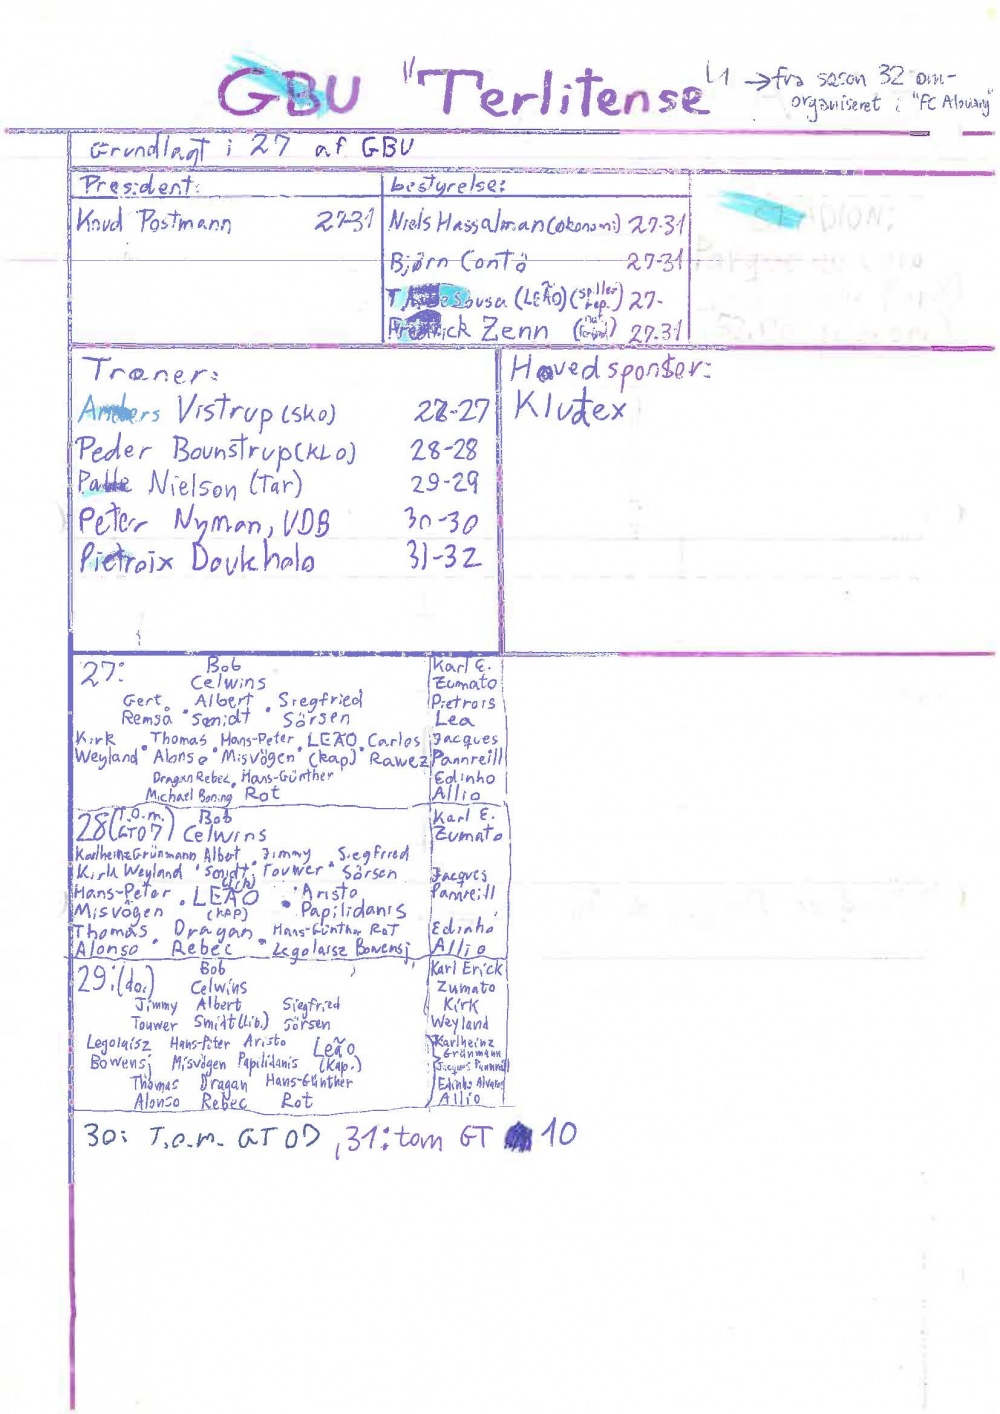 GBU "Terlitense" → fra sæson 32 om-
organiseret i "FC Alouisy"
Grundlagt i 27 af GBU
President:
Knud Postmann 27-31
bestyrelse:
Niels Hassalman (økonomi) 27-31
Bjørn Contö 27-31
Sousa (LEÃO) (spiller rep.) 27-
Fredrick Zenn 27-31
Træner:
Anders Vistrup (sko) 27-27
Peder Bounstrup (KLO) 28-28
Palle Nielson (Tar) 29-29
Peter Nyman, VDB 30-30
Pietroix Doukholo 31-32
Hovedsponsor:
Klutex
27:
Bob
Celwins
Gert. Albert. Siegfried
Remså Smidt Sörsen
Kirk. Thomas. Hans-Peter. LEÃO. Carlos
Weyland Alonso Misvögen (kap) Rawez
Dragan Rebec. Hans-Günther
Michael Boning Rot
Karl E.
Zumato
Pietrois
Lea
Jacques
Pannreill
Edinho
Allio
28 (T.O.m. GT07)
Bob
Celwins
Karlheinz Grünmann Albert. Jimmy. Siegfried
Kirk Weyland Smidt Touwer Sörsen
Hans-Peter. LEÃO. Aristo
Misvögen (KAP) Papilidanis
Thomas Dragan Hans-Günther Rot
Alonso. Rebec. Legolaisz Bowensj
Karl E.
Zumato
Jacques
Pannreill
Edinho
Allio
29: (do.)
Bob
Celwins
Jimmy Albert Siegfried
Touwer Smidt (Lib.) Sörsen
Legolaisz Hans-Peter Aristo Leão
Bowensj Misvögen Papilidanis (Kap.)
Thomas Dragan Hans-Günther
Alonso Rebec Rot
Karl Erick
Zumato
Kirk
Weyland
Karlheinz
Grünmann
Jacques Pannreill
Edinho Alvarez
Allio
30: T.o.m. GT 0D, 31: tom GT 10